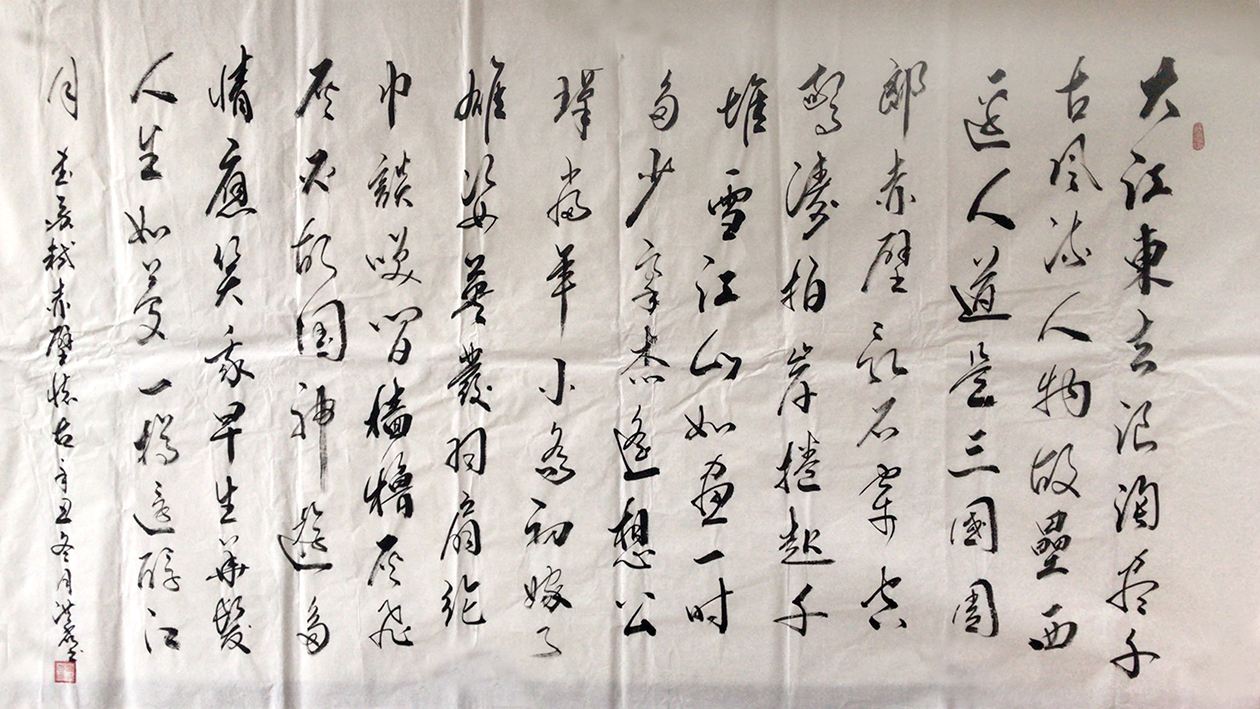 大江東去浪淘尽千
古風流人物故壘西
邊人道是三國周
郎赤壁乱石穿空
驚濤拍岸捲起千
堆雪江山如畫一时
多少豪杰遥想公
瑾當年小喬初嫁了
雄姿英發羽扇纶
巾談咲間檣櫓灰飛
灰灭故国神遊多
情應笑我早生華髮
人生如夢一樽還酹江
月
書蘇軾赤壁懷古辛丑冬月